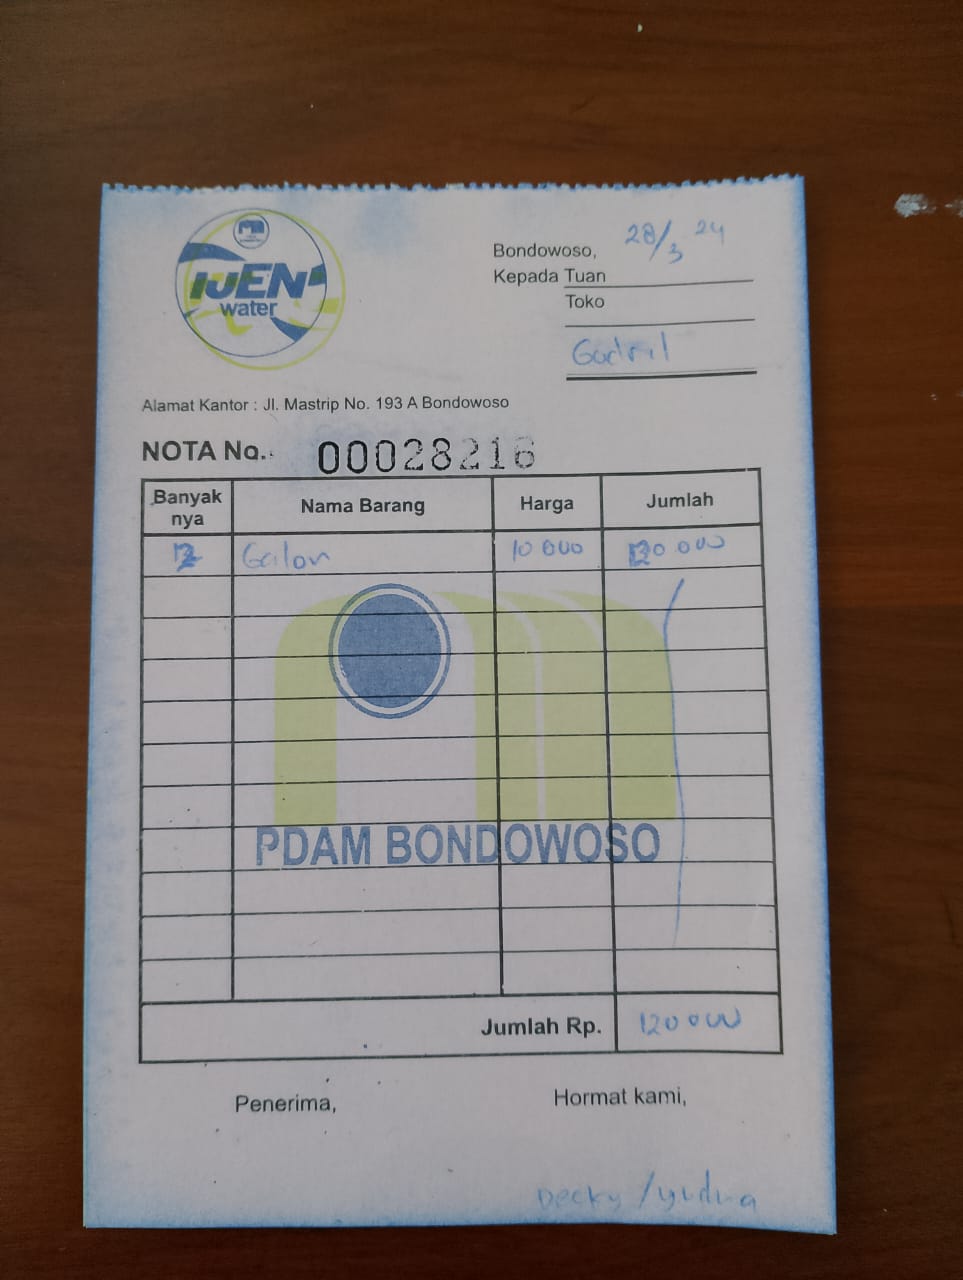 IJEN
water
Bondowoso, 28/3 24
Kepada Tuan
Toko
Alamat Kantor : Jl. Mastrip No. 193 A Bondowoso
NOTA No. 00028216
Banyak nya Nama Barang Harga Jumlah
12 Galon 10 000 120 000
PDAM BONDOWOSO
Jumlah Rp. 120 000
Penerima, Hormat kami,
Decky / yudha